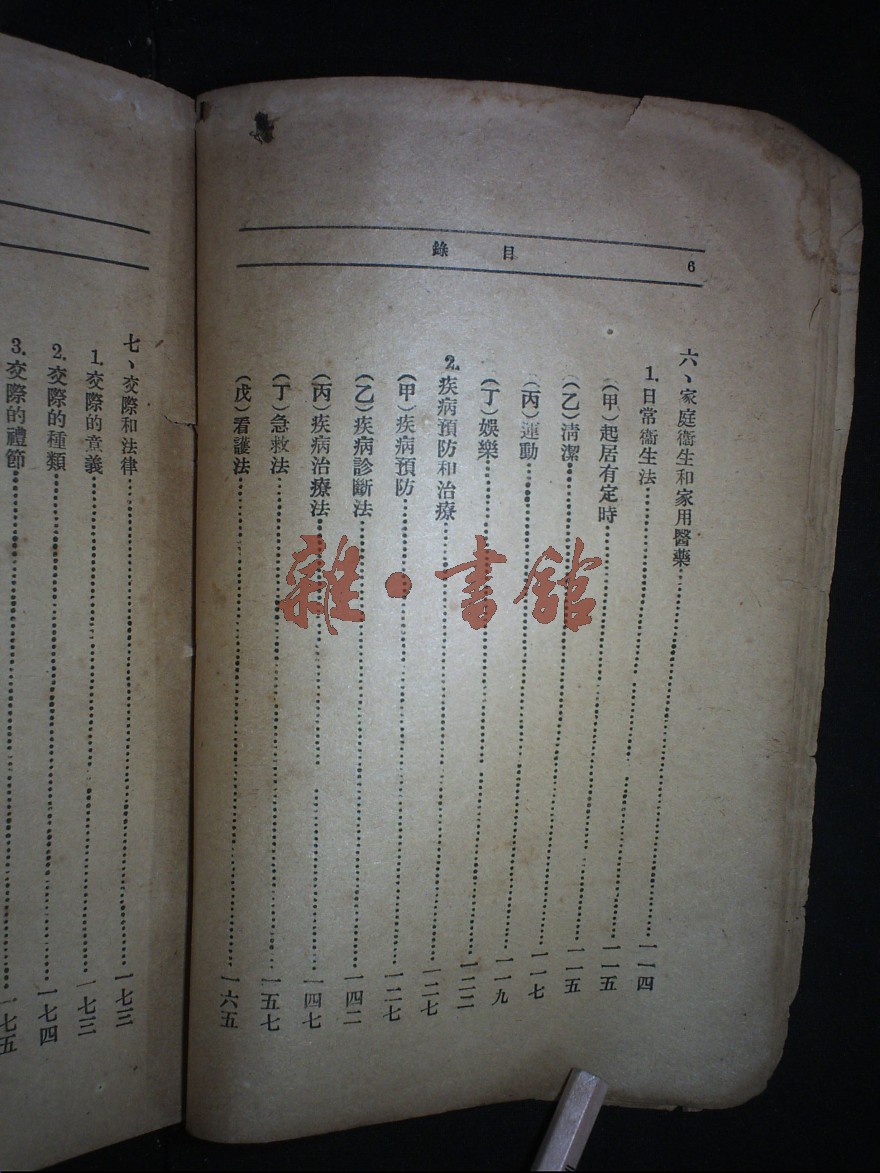 6 目錄
六、家庭衞生和家用醫藥……一一四
1.日常衞生法……一一五
(甲)起居有定時……一一五
(乙)清潔……一一七
(丙)運動……一一九
(丁)娛樂……一二二
2.疾病預防和治療……一二七
(甲)疾病預防……一二七
(乙)疾病診斷法……一四二
(丙)疾病治療法……一四七
(丁)急救法……一五七
(戊)看護法……一六五
七、交際和法律……一七三
1.交際的意義……一七三
2.交際的種類……一七四
3.交際的禮節……一七五
雜·書館